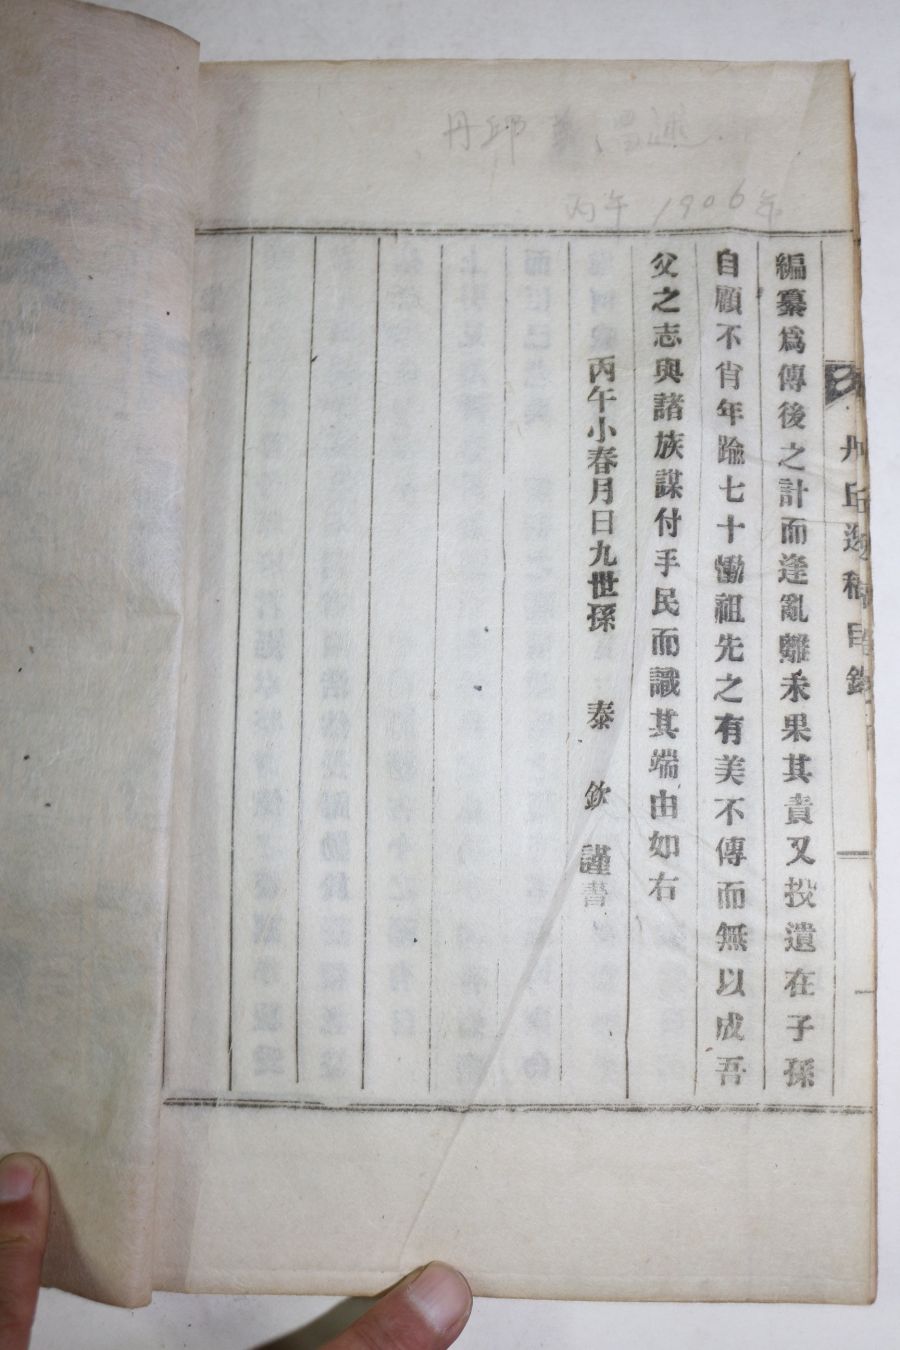 丹邱
丙午 1906年
編纂爲傳後之計而逢亂離未果其責又投遺在子孫
自顧不肖年踰七十慟祖先之有美不傳而無以成吾
父之志與諸族謀付手民而識其端由如右
丙午小春月日九世孫 泰 欽 謹書
丹丘逸稿目錄